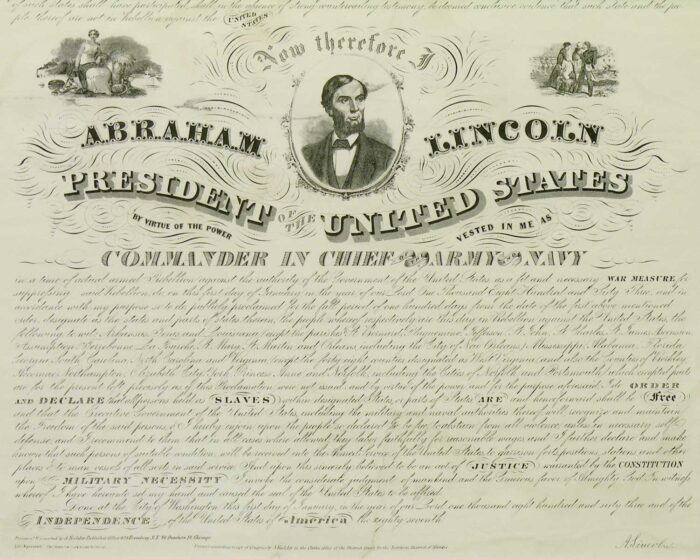 of such states shall have participated, shall, in the absence of strong countervailing testimony, be deemed conclusive evidence that such state and the peo-
ple thereof are not in Rebellion against the UNITED STATES
Now therefore I
ABRAHAM LINCOLN
PRESIDENT OF THE UNITED STATES
BY VIRTUE OF THE POWER VESTED IN ME AS
COMMANDER IN CHIEF OF THE ARMY AND NAVY
in a time of actual armed Rebellion against the authority of the Government of the United States, as a fit and necessary WAR MEASURE for
suppressing said Rebellion, do, on this first day of January, in the year of our Lord One Thousand Eight Hundred and Sixty Three, and in
accordance with my purpose so to do, publicly proclaimed for the full period of one hundred days from the date of the first above mentioned
order, designate as the States and parts of States wherein the people whereof respectively are this day in Rebellion against the United States, the
following to wit: Arkansas, Texas and Louisiana, (except the parishes of St. Bernard, Plaquemine, Jefferson, St. John, St. Charles, St. James, Ascension,
Assumption, Terrebonne, La Fourche, St. Mary, St. Martin and Orleans, including the City of New Orleans,) Mississippi, Alabama, Florida,
Georgia, South Carolina, North Carolina and Virginia, (except the forty eight counties designated as West Virginia, and also the Counties of Berkley,
Accomac, Northampton, Elizabeth City, York, Princess Anne and Norfolk, including the Cities of Norfolk and Portsmouth, which excepted parts
are for the present left precisely as if this Proclamation were not issued; and by virtue of the power and for the purpose aforesaid, I do ORDER
AND DECLARE that all persons held as SLAVES within designated States, & parts of States ARE and henceforward shall be Free
and that the Executive Government of the United States, including the military and naval authorities thereof will recognize and maintain
the Freedom of the said persons, & I hereby enjoin upon the people so declared to be free, to abstain from all violence, unless in necessary self
defense, and I recommend to them that in all cases where allowed, they labor faithfully for reasonable wages, and I further declare and make
known that such persons of suitable condition, will be received into the Armed Service of the United States, to garrison forts, positions, stations and other
places & to man vessels of all sorts in said service. And upon this, sincerely believed to be an act of JUSTICE warranted by the CONSTITUTION
upon MILITARY NECESSITY I invoke the considerate judgment of mankind and the Gracious favor of Almighty God. In witness
whereof I have hereunto set my hand and caused the seal of the United States to be affixed.
Done at the City of Washington this first day of January, in the year of our Lord one thousand eight hundred and sixty three and of the
INDEPENDENCE of the United States of America the eighty seventh
A. Lincoln